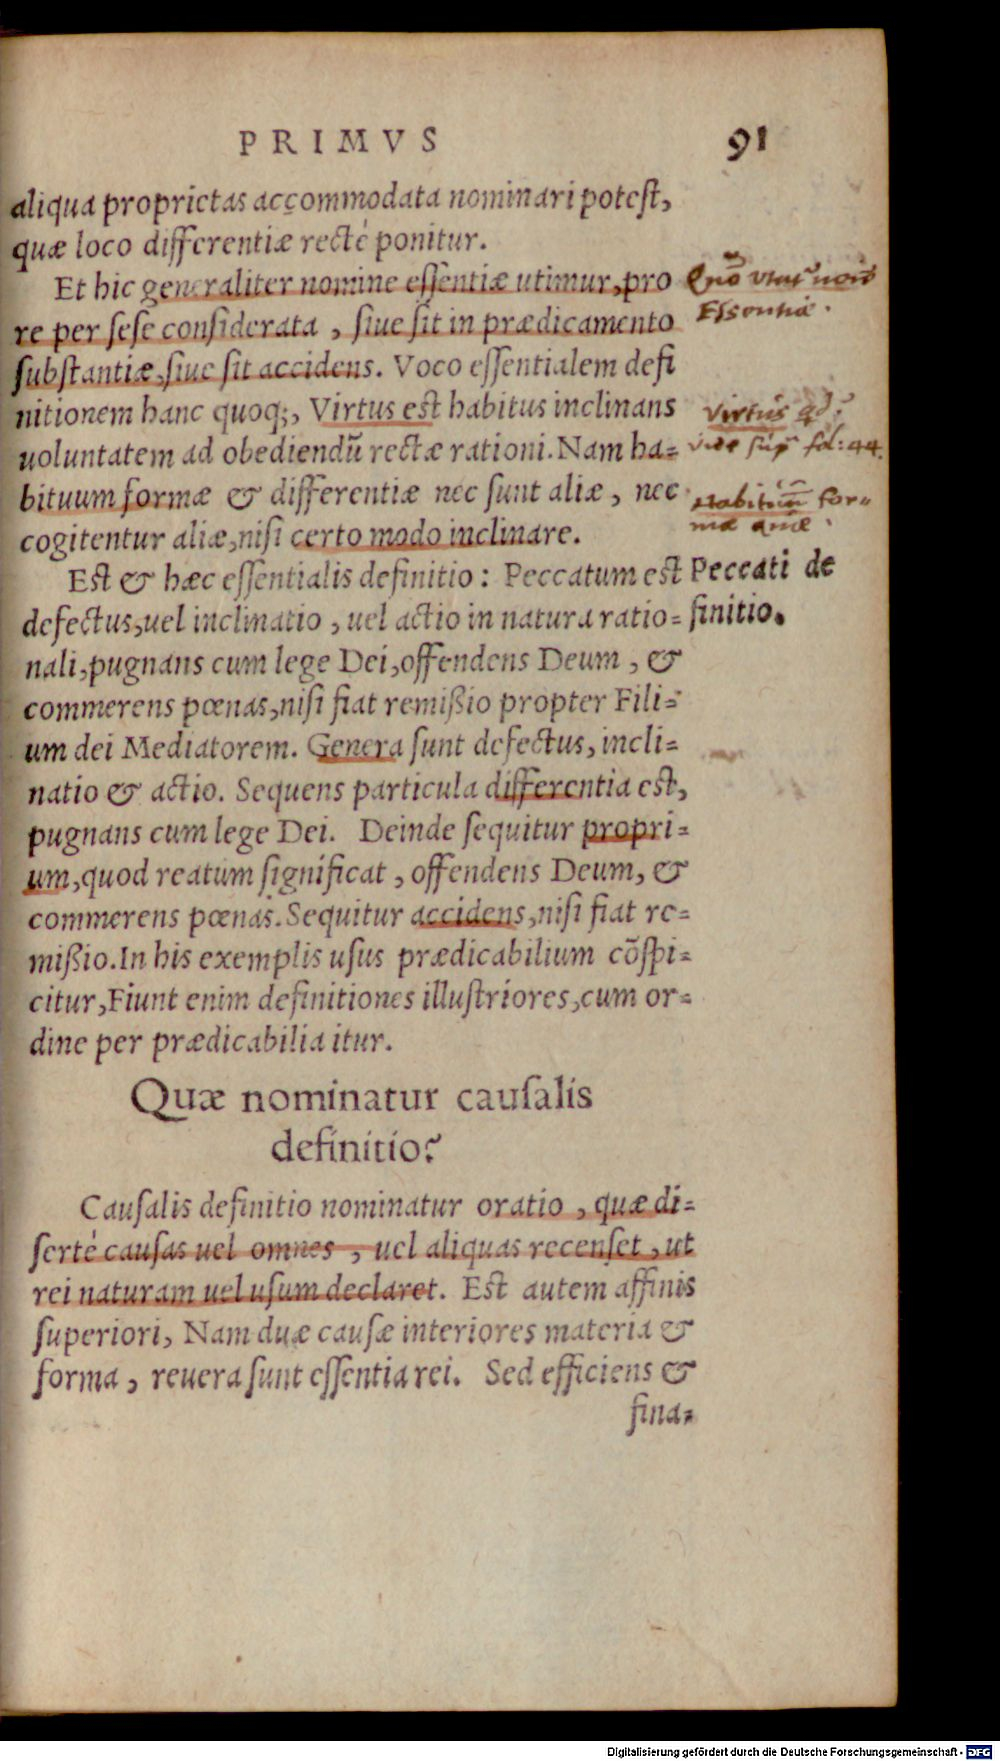 PRIMVS 91
aliqua proprietas accommodata nominari potest,
quæ loco differentiæ recté ponitur.
Et hic generaliter nomine eſſentiæ utimur, pro
re per ſeſe conſiderata, ſiue ſit in prædicamento
ſubſtantiæ, ſiue ſit accidens. Voco eſſentialem defi
nitionem hanc quoq;, Virtus est habitus inclinans
uoluntatem ad obediendũ rectæ rationi. Nam ha-
bituum formæ & differentiæ nec ſunt aliæ, nec
cogitentur aliæ, niſi certo modo inclinare.
Est & hæc eſſentialis definitio: Peccatum est
defectus, uel inclinatio, uel actio in natura ratio-
nali, pugnans cum lege Dei, offendens Deum, &
commerens pœnas, niſi fiat remißio propter Fili-
um dei Mediatorem. Genera ſunt defectus, incli-
natio & actio. Sequens particula differentia est,
pugnans cum lege Dei. Deinde ſequitur propri-
um, quod reatum ſignificat, offendens Deum, &
commerens pœnas. Sequitur accidens, niſi fiat re-
mißio. In his exemplis uſus prædicabilium cõſpi-
citur, Fiunt enim definitiones illuſtriores, cum or-
dine per prædicabilia itur.
Quæ nominatur cauſalis
definitio?
Cauſalis definitio nominatur oratio, quæ di-
ſerté cauſas uel omnes, uel aliquas recenſet, ut
rei naturam uel uſum declaret. Est autem affinis
ſuperiori, Nam duæ cauſæ interiores materia &
forma, reuera ſunt eſſentia rei. Sed efficiens &
fina-
Essentiæ.
Virtus
fol: 44.
Habituũ for-
mæ
Peccati de
finitio.
Digitalisierung gefördert durch die Deutsche Forschungsgemeinschaft - DFG